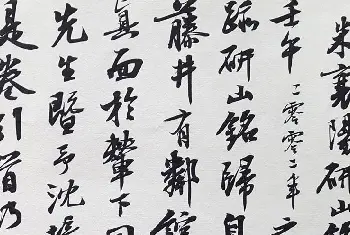 米襄陽研山
壬午二零零二年
跡研山銘歸自
藤井有鄰館
真面於輦下
先生暨予沈
是卷引首乃